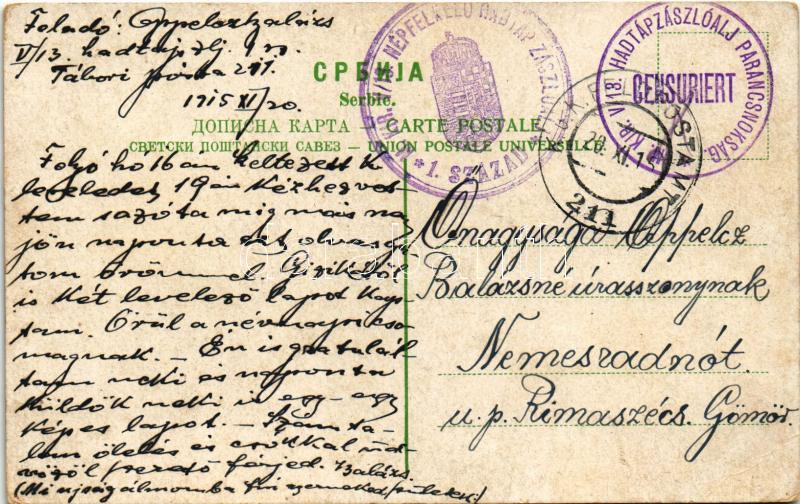 Feladó: Oppelcz Balázs
V/13 hadtáp zlj. 1 sz.
Tábori posta 211.
1915 XI/20.
СРБИЈА
Serbie.
ДОПИСНА КАРТА — CARTE POSTALE
СВЕТСКИ ПОШТАНСКИ САВЕЗ — UNION POSTALE UNIVERSELLE
NÉPFELKELŐ HADTÁP ZÁSZLÓALJ
* 1. SZÁZAD *
HADTÁPZÁSZLÓALJ PARANCSNOKSÁG
CENSURIERT
POSTAMT
20. XI. 15
211
Folyó hó ban keltezett
leveledet 19én kézhezvet
tem azóta míg más na
jön naponta ezt olvasga
tom örömmel. Gizikétől
is két levelező lapot kap
tam. Örül a névnapi cso
magnak. — Én is gratulál
tam neki és naponta
küldök neki is egy-egy
képes lapot. — Számta
lan ölelés és csókkal üd
vözöl szerető férjed. Balázs.
Őnagysága Oppelcz
Balázsné úrasszonynak
Nemesradnót.
u. p. Rimaszécs. Gömör.